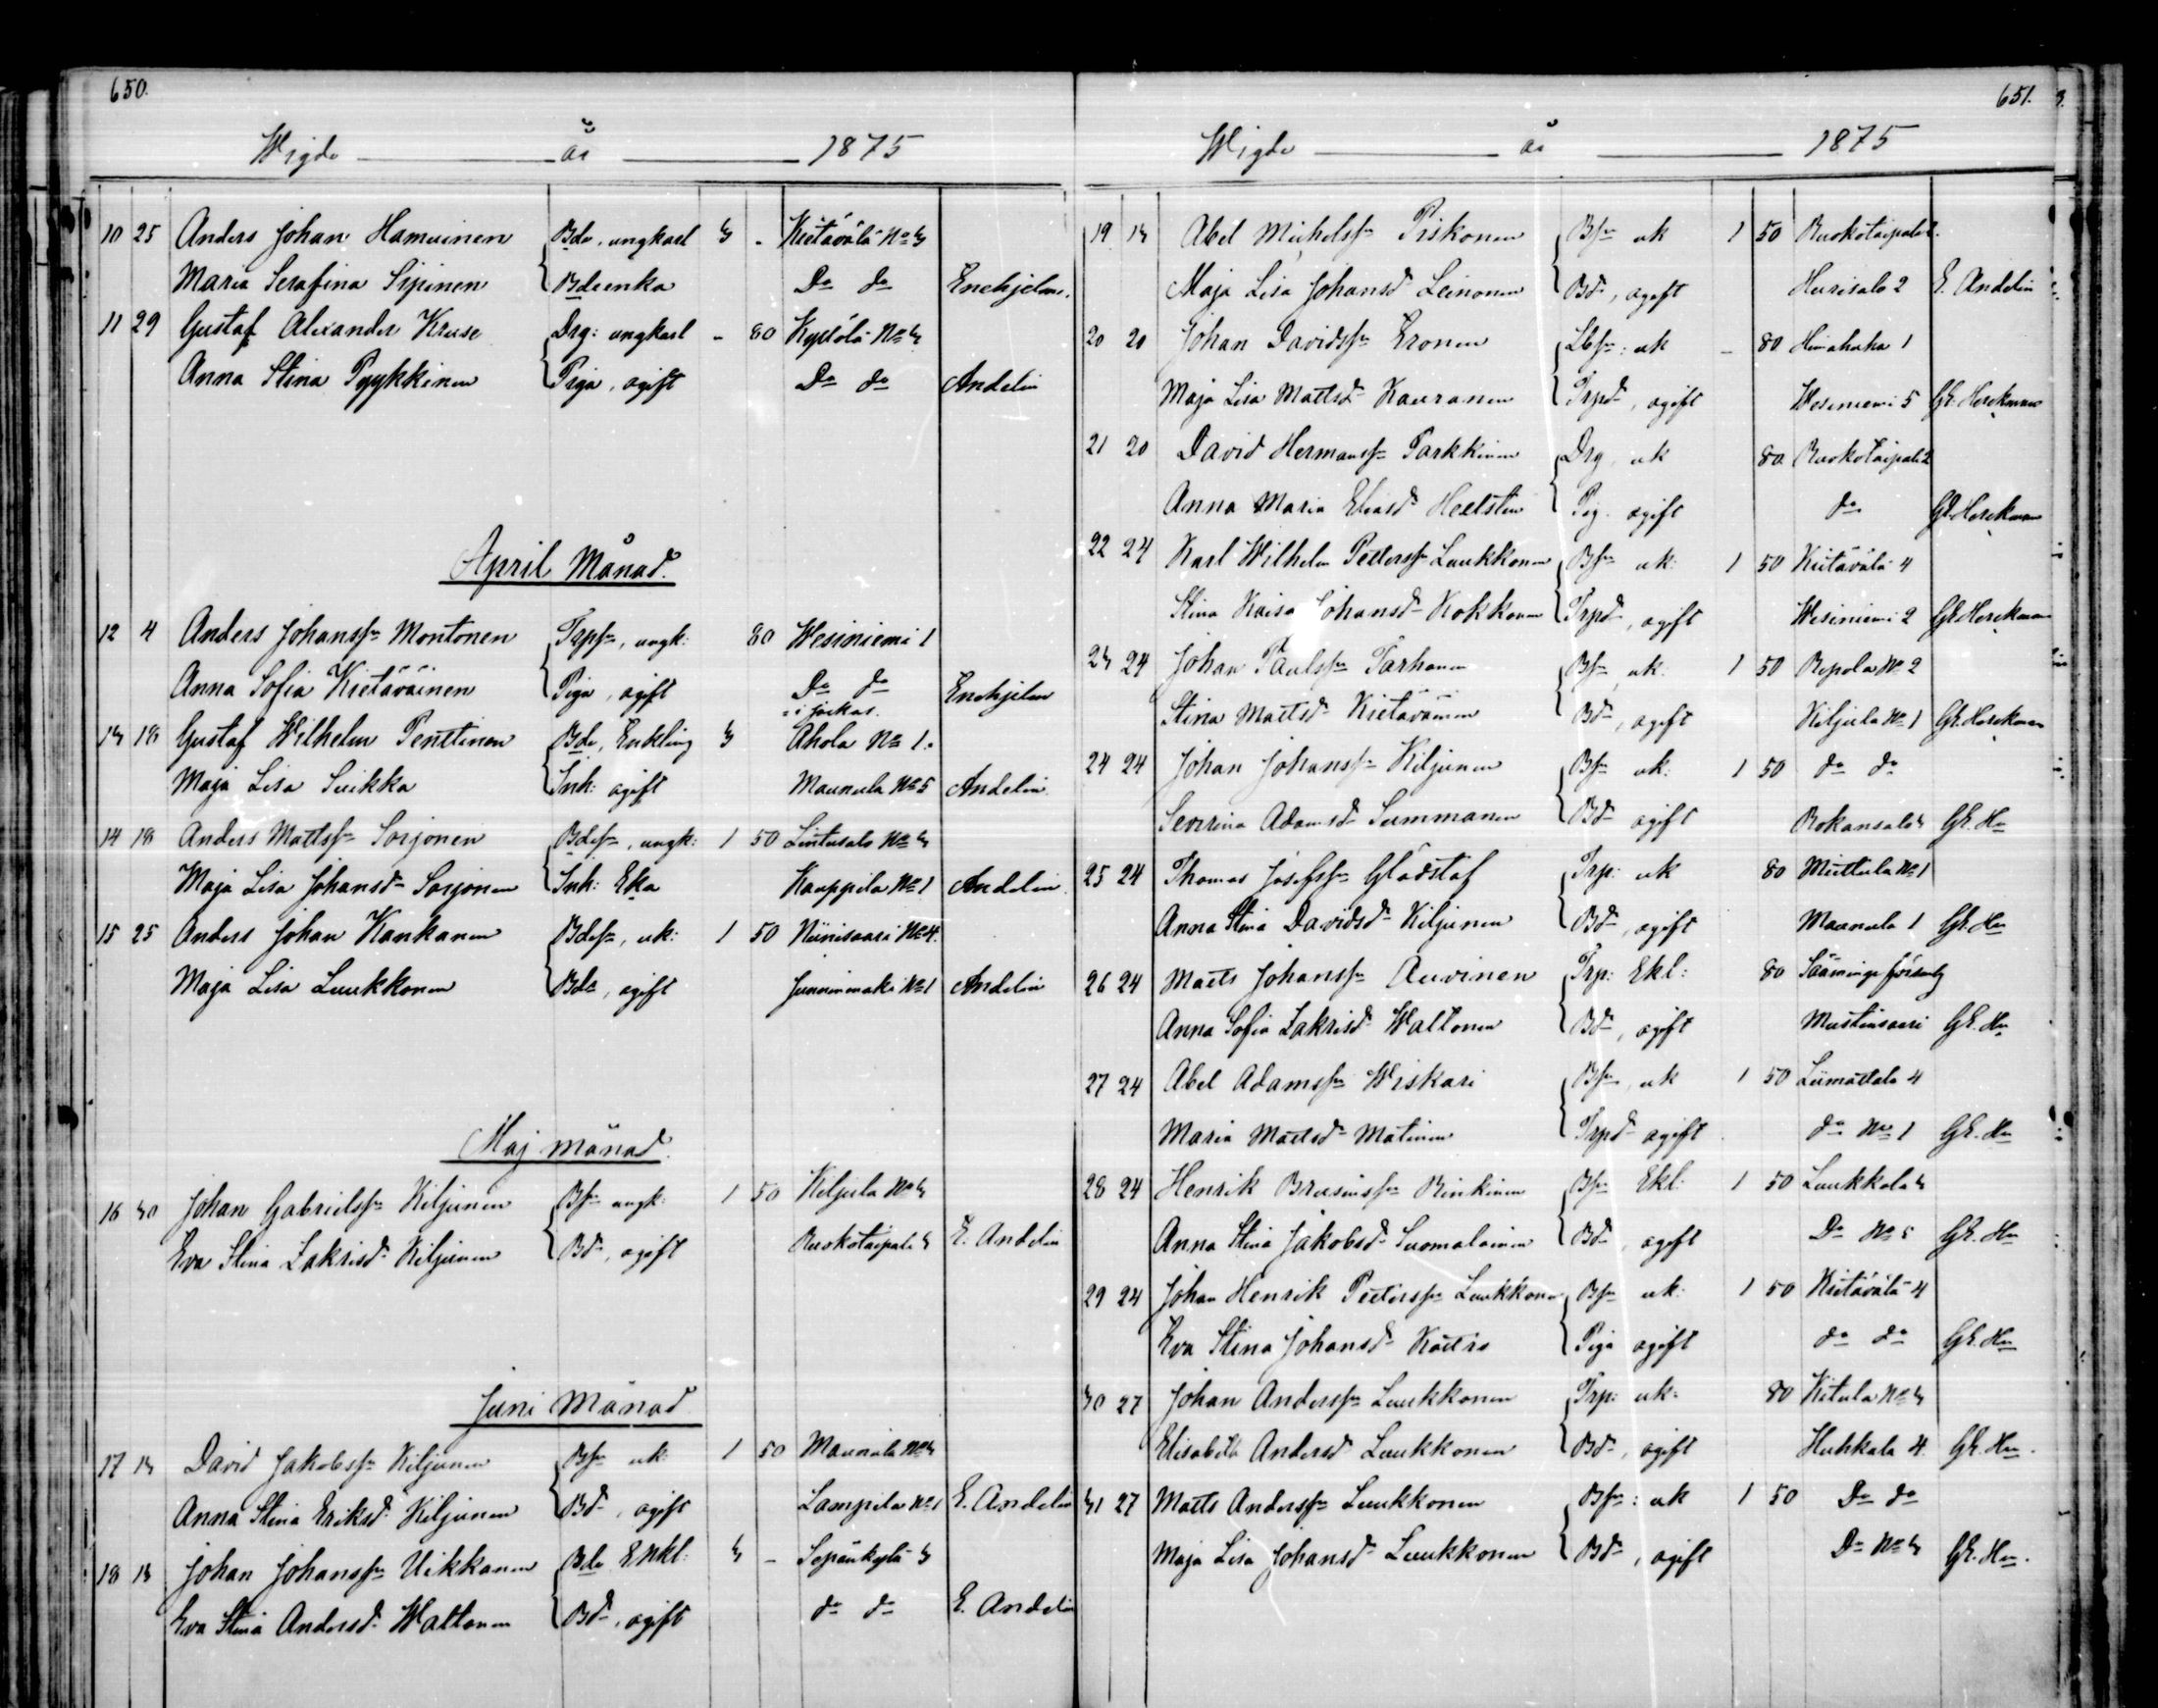 650.
Wigde år 1875
10 25 Anders Johan Hamuinen Bde, ungkarl 3 - Kietävälä No 3
Maria Serafina Sipinen Bdeenka Do do Enehjelm.
11 29 Gustaf Alexander Kruse Drg: ungkarl - 80 No 3
Anna Stina Pyykkinen Piga, ogift Do do Andelin
April Månad.
12 4 Anders Johanssn Montonen Trpsn, ungk: 80 Wesiniemi 1
Anna Sofia Kietäväinen Piga, ogift Do do Enehjelm
13 18 Gustaf Wilhelm Penttinen Bde, Enkling 3 Ahola No 1.
Maja Lisa Suikka Inh: ogift Maunula No 5 Andelin
14 18 Anders Mattssn Sorjonen Bdesn, ungk: 1 50 Lintusalo No 3
Maja Lisa Johansdr Sorjonen Inh: Eka Kauppila No 1 Andelin
15 25 Anders Johan Kankanen Bdesn, uk: 1 50 Niinisaari No 4.
Maja Lisa Luukkonen Bde, ogift Junninmäki No 1 Andelin
Maj månad.
16 30 Johan Gabrielssn Kiljunen Bsn ungk: 1 50 Kiljula No 3
Eva Stina Zakrisdr Kiljunen Bdr, ogift Ruokotaipale 3 E. Andelin
Juni Månad
17 13 David Jakobssn Kiljunen Bsn uk: 1 50 Maunula No 3
Anna Stina Eriksdr Kiljunen Bdr, ogift Lampila No 1 E. Andelin
18 13 Johan Johanssn Uikkanen Bde Enkl: 3 - Sepänkylä 3
Eva Stina Andersdr Waltonen Bdr, ogift do do E. Andelin
651.
Wigde år 1875
19 13 Abel Michelssn Piskonen Bsn uk 1 50 Ruokotaipale 2.
Maja Lisa Johansdr Leinonen Bdr, ogift Hurisalo 2 E. Andelin
20 20 Johan Davidssn Eronen Lbsn: uk - 80 Himahaka 1
Maja Lisa Mattsdr Kauranen Trpdr, ogift Wesiniemi 5 GE. Horckman
21 20 David Hermanssn Parkkinen Drg, uk 80 Ruokotaipale 2
Anna Maria Eliasdr Heelsten Pig. ogift do GE. Horckman
22 24 Karl Wilhelm Petterssn Luukkonen Bsn uk: 1 50 Kietävälä 4
Stina Kaisa Johansdr Kokkonen Trpdr, ogift Wesiniemi 2 GE. Horckman
23 24 Johan Paulssn Tarhanen Bsn, uk: 1 50 Repola No 2
Stina Mattsdr Kietäväinen Bdr, ogift Kiljula No 1 GE. Horckman
24 24 Johan Johanssn Kiljunen Bsn uk: 1 50 do do
Severina Adamsdr Summanen Bdr ogift Rokansalo 3 GE. Hn
25 24 Thomas Josefssn Gladstaf Trp: uk 80 Miettula No 1
Anna Stina Davidsdr Kiljunen Bdr, ogift Maunula 1 GE. Hn
26 24 Matts Johanssn Auvinen Trp: Ekl: 80 Sääminge förslg
Anna Sofia Zakrisdr Waltonen Bdr, ogift Mustinsaari GE. Hn
27 24 Abel Adamssn Wiskari Bsn, uk 1 50 Liimattala 4
Maria Mattsdr Matinen Trpdr ogift do No 1 GE. Hn
28 24 Henrik Brusinssn Rinkinen Bsn Ekl: 1 50 Luukkola 3
Anna Stina Jakobsdr Suomalainen Bdr, ogift Do No 5 GE. Hn
29 24 Johan Henrik Petterssn Luukkonen Bsn uk: 1 50 Kietävälä 4
Eva Stina Johansdr Piga ogift do do GE. Hn
30 27 Johan Anderssn Luukkonen Trp: uk: 80 Kitula No 3
Elisabeth Andersdr Luukkonen Bdr, ogift Huhkala 4. GE. Hn.
31 27 Matts Anderssn Luukkonen Bsn: uk 1 50 Do do
Maja Lisa Johansdr Luukkonen Bdr, ogift Do No 3 GE. Hn.